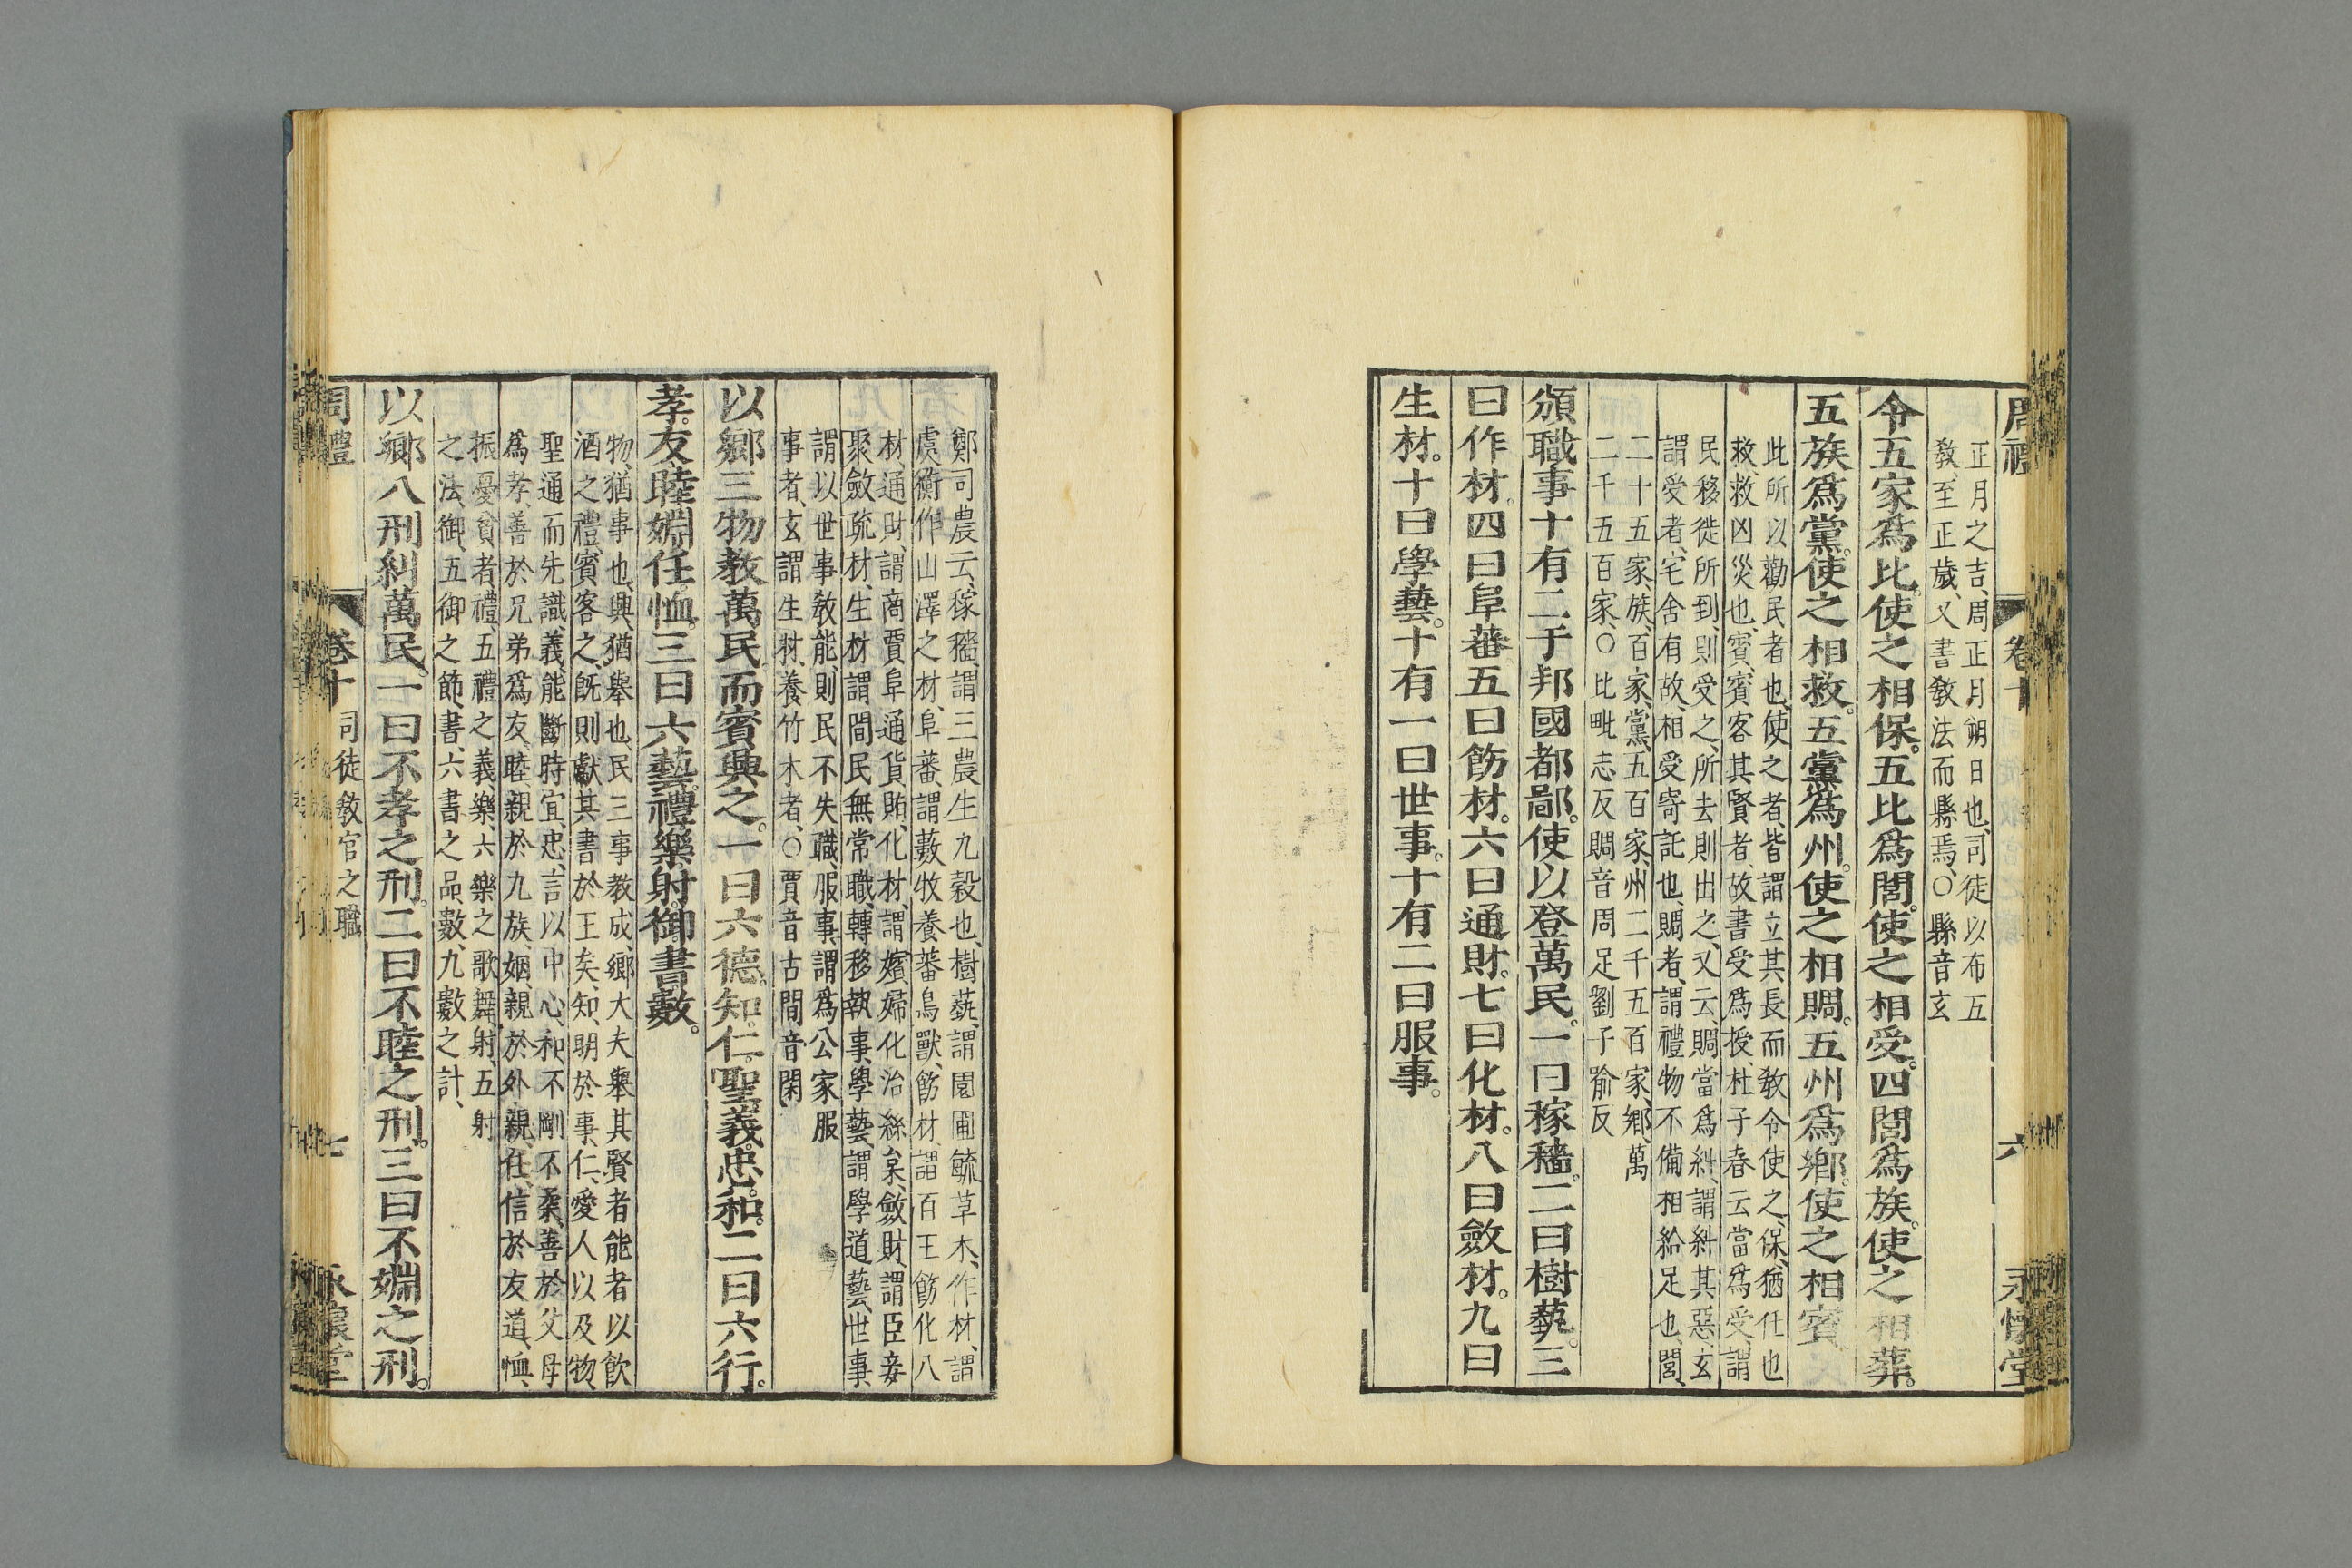 周禮 卷十 六 永懷堂
正月之吉、周正月朔日也、司徒以布五
敎、至正歲、又書敎法而縣焉、○縣音玄
令五家爲比。使之相保。五比爲閭。使之相受。四閭爲族。使之相葬。
五族爲黨。使之相救。五黨爲州。使之相賙。五州爲鄕。使之相賓。
此所以勸民者也、使之者、皆謂立其長而敎令使之、保、猶任也
救救凶災也、賓、賓客其賢者、故書受爲授杜子春云當爲受謂
民移徙所到、則受之、所去則出之、又云賙當爲糾、謂糾其惡、玄
謂受者、宅舍有故、相受寄託也、賙者、謂禮物不備相給足也、閭、
二十五家、族、百家、黨、五百家、州二千五百家、鄕、萬
二千五百家、○比毗志反賙音周足劉子喻反
頒職事十有二于邦國都鄙。使以登萬民。一曰稼穡。二曰樹蓺。三
曰作材。四曰阜蕃五曰飭材。六曰通財。七曰化材。八曰斂材。九曰
生材。十曰學藝。十有一曰世事。十有二曰服事。
鄭司農云、稼穡、謂三農生九穀也、樹蓺、謂園圃毓草木、作材、謂
虞衡作山澤之材、阜蕃、謂藪牧養蕃鳥獸、飭材、謂百工飭化八
材、通財、謂商賈阜通貨賄、化材、謂嬪婦化治絲枲、斂財、謂臣妾
聚斂疏材、生材謂閒民無常職、轉移執事、學藝、謂學道藝、世事、
謂以世事敎能、則民不失職、服事、謂爲公家服
事者、玄謂生材、養竹木者、○賈音古閒音閑、
以鄕三物敎萬民。而賓興之。一曰六德。知。仁。聖義。忠。和。二曰六行。
孝。友睦婣任恤。三曰六藝。禮樂。射。御書數。
物、猶事也、興、猶舉也、民三事教成、鄕大夫舉其賢者能者以飮
酒之禮、賓客之、旣則獻其書於王矣、知、明於事、仁、愛人以及物、
聖通而先識、義、能斷時宜、忠、言以中心、和、不剛不柔、善於父母
爲孝、善於兄弟爲友、睦、親於九族、姻、親於外親、任、信於友道、恤、
振憂貧者、禮、五禮之義、樂、六樂之歌舞、射、五射
之法、御、五御之節、書、六書之品、數、九數之計、
以鄕八刑糾萬民。一曰不孝之刑。二曰不睦之刑。三曰不婣之刑。
周禮 卷十 司徒敎官之職 七 永懷堂